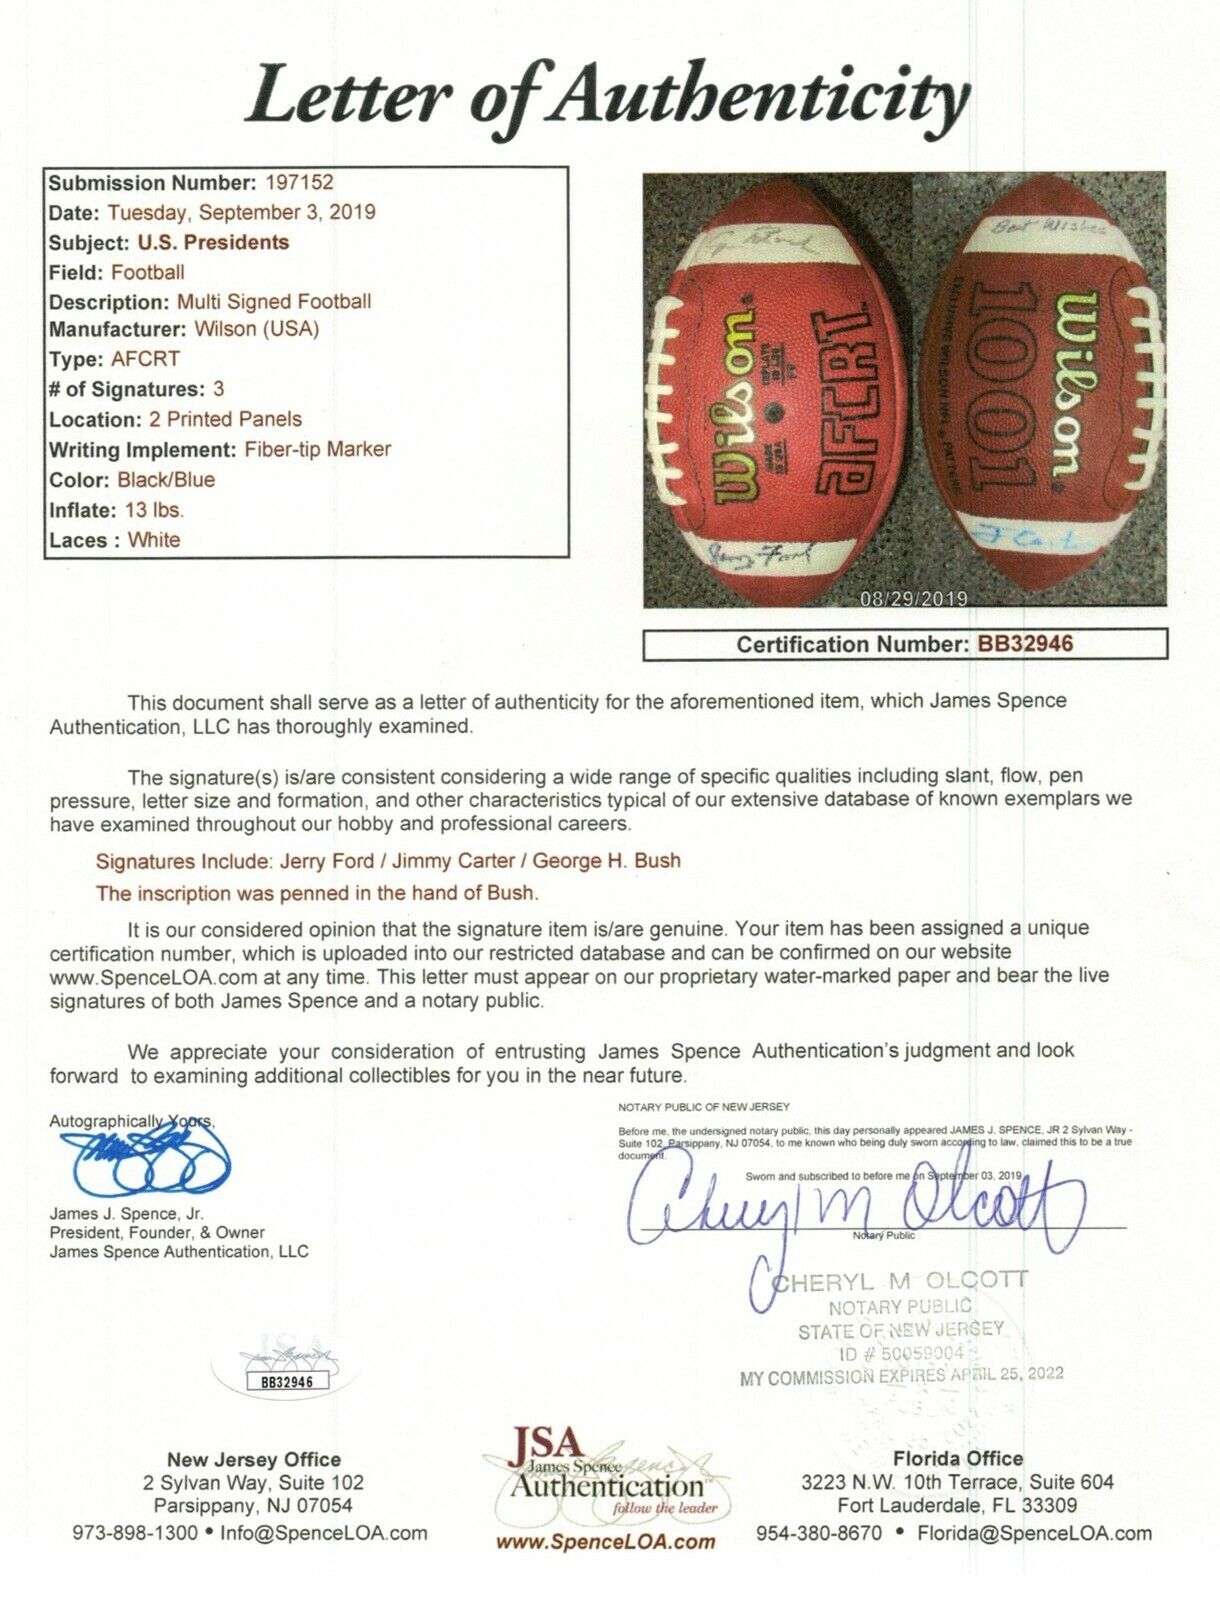 Letter of Authenticity
Submission Number: 197152
Date: Tuesday, September 3, 2019
Subject: U.S. Presidents
Field: Football
Description: Multi Signed Football
Manufacturer: Wilson (USA)
Type: AFCRT
# of Signatures: 3
Location: 2 Printed Panels
Writing Implement: Fiber-tip Marker
Color: Black/Blue
Inflate: 13 lbs.
Laces : White
Wilson
AFCRT
MADE
IN USA
Jerry Ford
Best Wishes
Wilson
1001
J Carter
08/29/2019
Certification Number: BB32946
This document shall serve as a letter of authenticity for the aforementioned item, which James Spence
Authentication, LLC has thoroughly examined.
The signature(s) is/are consistent considering a wide range of specific qualities including slant, flow, pen
pressure, letter size and formation, and other characteristics typical of our extensive database of known exemplars we
have examined throughout our hobby and professional careers.
Signatures Include: Jerry Ford / Jimmy Carter / George H. Bush
The inscription was penned in the hand of Bush.
It is our considered opinion that the signature item is/are genuine. Your item has been assigned a unique
certification number, which is uploaded into our restricted database and can be confirmed on our website
www.SpenceLOA.com at any time. This letter must appear on our proprietary water-marked paper and bear the live
signatures of both James Spence and a notary public.
We appreciate your consideration of entrusting James Spence Authentication's judgment and look
forward to examining additional collectibles for you in the near future.
Autographically Yours,
James J. Spence, Jr.
President, Founder, & Owner
James Spence Authentication, LLC
NOTARY PUBLIC OF NEW JERSEY
Before me, the undersigned notary public, this day personally appeared JAMES J. SPENCE, JR 2 Sylvan Way -
Suite 102, Parsippany, NJ 07054, to me known who being duly sworn according to law, claimed this to be a true
document.
Sworn and subscribed to before me on September 03, 2019
Cheryl M Olcott
Notary Public
CHERYL M OLCOTT
NOTARY PUBLIC
STATE OF NEW JERSEY
ID # 50059004
MY COMMISSION EXPIRES APRIL 25, 2022
JSA
BB32946
New Jersey Office
2 Sylvan Way, Suite 102
Parsippany, NJ 07054
973-898-1300 • Info@SpenceLOA.com
JSA
James Spence
Authentication
follow the leader
www.SpenceLOA.com
Florida Office
3223 N.W. 10th Terrace, Suite 604
Fort Lauderdale, FL 33309
954-380-8670 • Florida@SpenceLOA.com